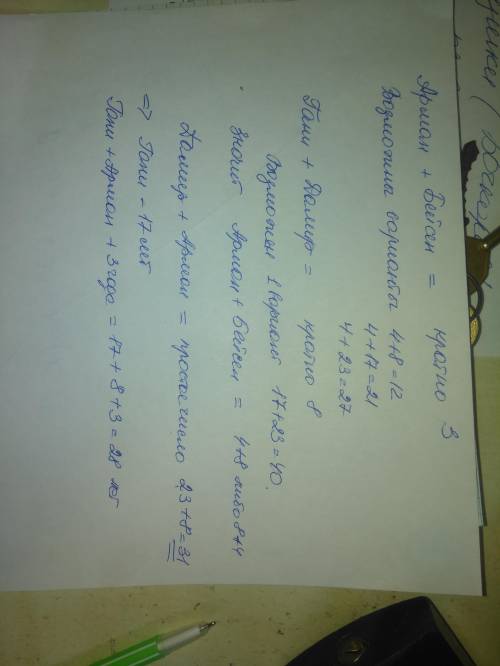 Арман + Бейсен = кратно 3
Возможны варианты 4+8=12
4+17=21
4+23=27
Гани + Дамир = кратно 8
Возможен 1 вариант 17+23=40.
Значит Арман + Бейсен = 4+8 либо 8+4
Дамир + Арман = простое число 23+8=31
=> Гани - 17 лет
Гани + Арман + 3 года = 17+8+3=28 лет